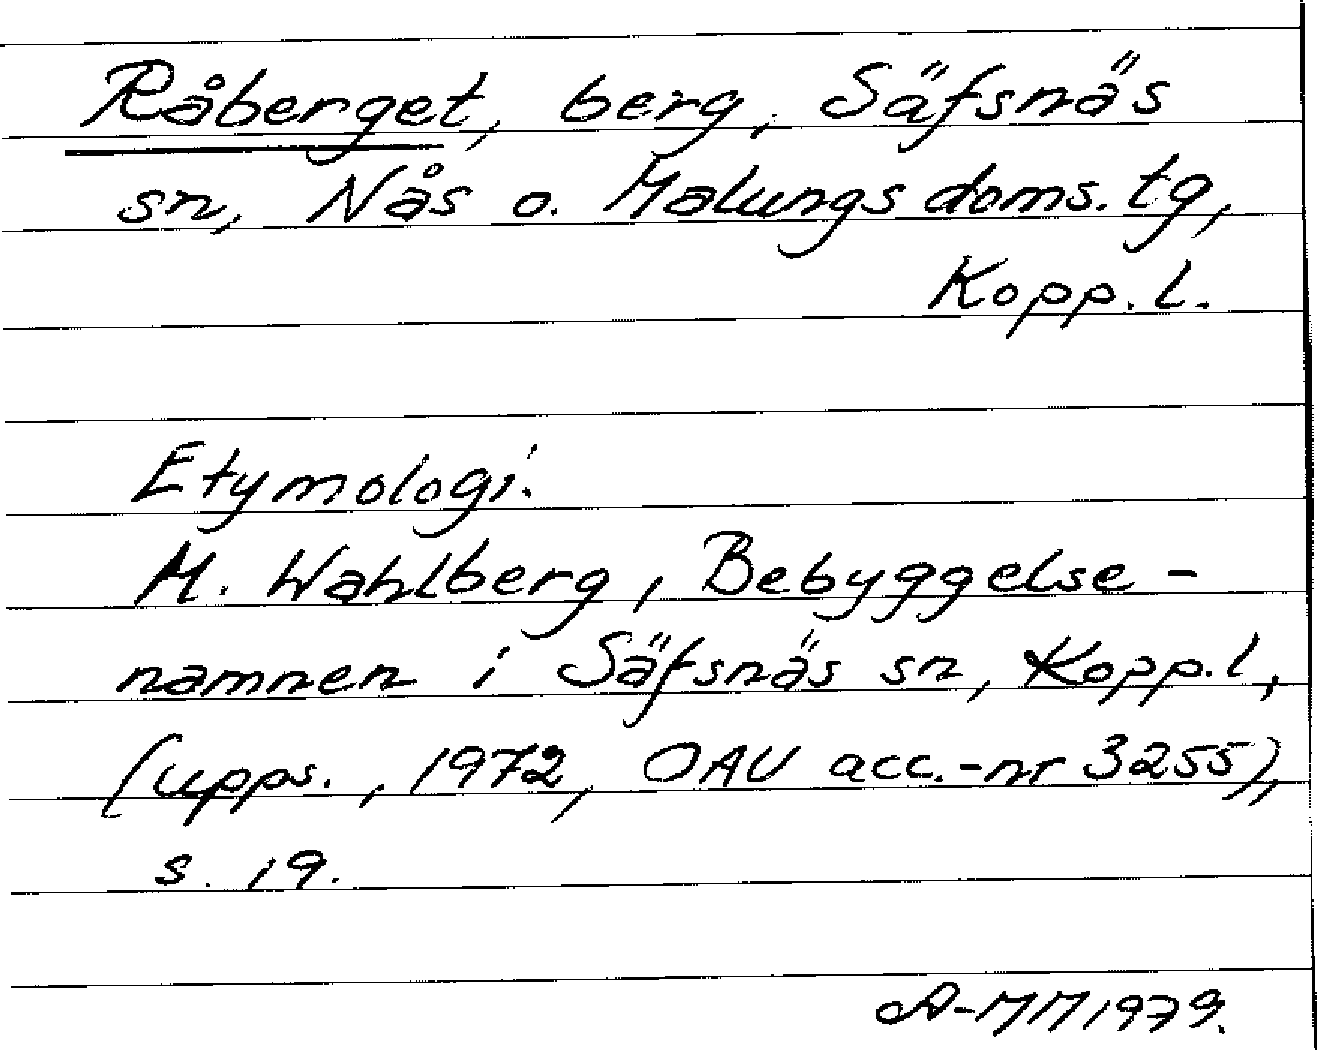 Råberget, berg, Säfsnäs
sn, Nås o. Malungs doms. tg,
Kopp. l.
Etymologi.
M. Wahlberg, Bebyggelse-
namnen i Säfsnäs sn, Kopp. l,
(upps., 1972, OAU acc.-nr 3255),
s. 19.
A-MM 1979.